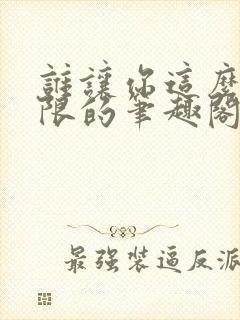 誰讓你這麼
限的筆趣閣
最強裝逼反派